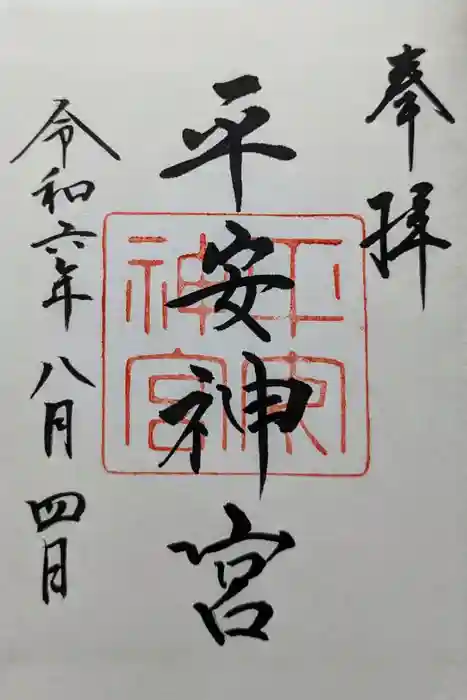 奉拝
平安神宮
平安神宮
令和六年八月四日